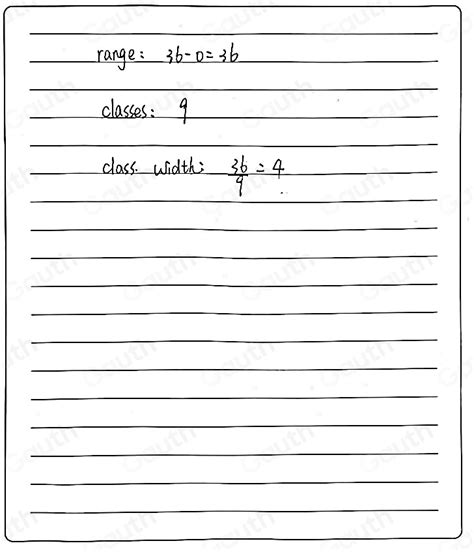 range: 36-0=36
classes: 9
class. width: 36/9 = 4